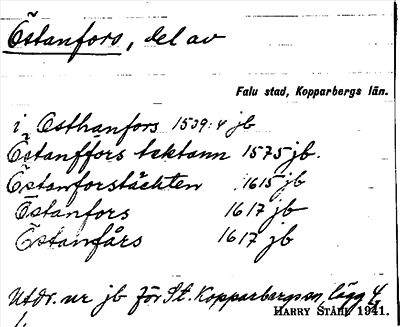 Östanfors, del av
Falu stad, Kopparbergs län.
i Osthanfors 1539:4 jb
Östanffors tektann 1575 jb.
Östanforstäckten 1615 jb
Östanfors 1617 jb
Östanfårs 1617 jb
Utdr. ur jb för St. Kopparbergs sn, lägg 4
HARRY STÅHL 1941.